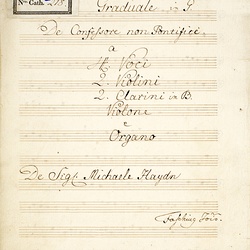 No Cath.
Graduale in G
De Confessore non Pontifici.
a
4. Voci
2. Violini
2. Clarini in B.
Violone
e
Organo
De Sig. Michaele Haydn